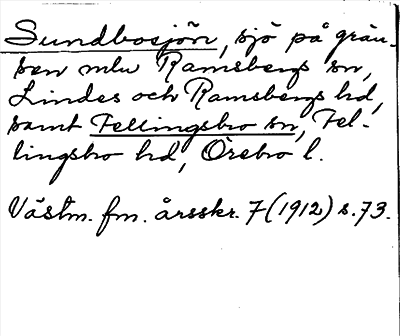 Sundbosjön, sjö på grän-
sen mlu Ramsbergs sn,
Lindes och Ramsbergs hd,
samt Fellingsbro sn, Fel-
lingsbro hd, Örebro l.
Västm. fm. årsskr. 7 (1912) s. 73.